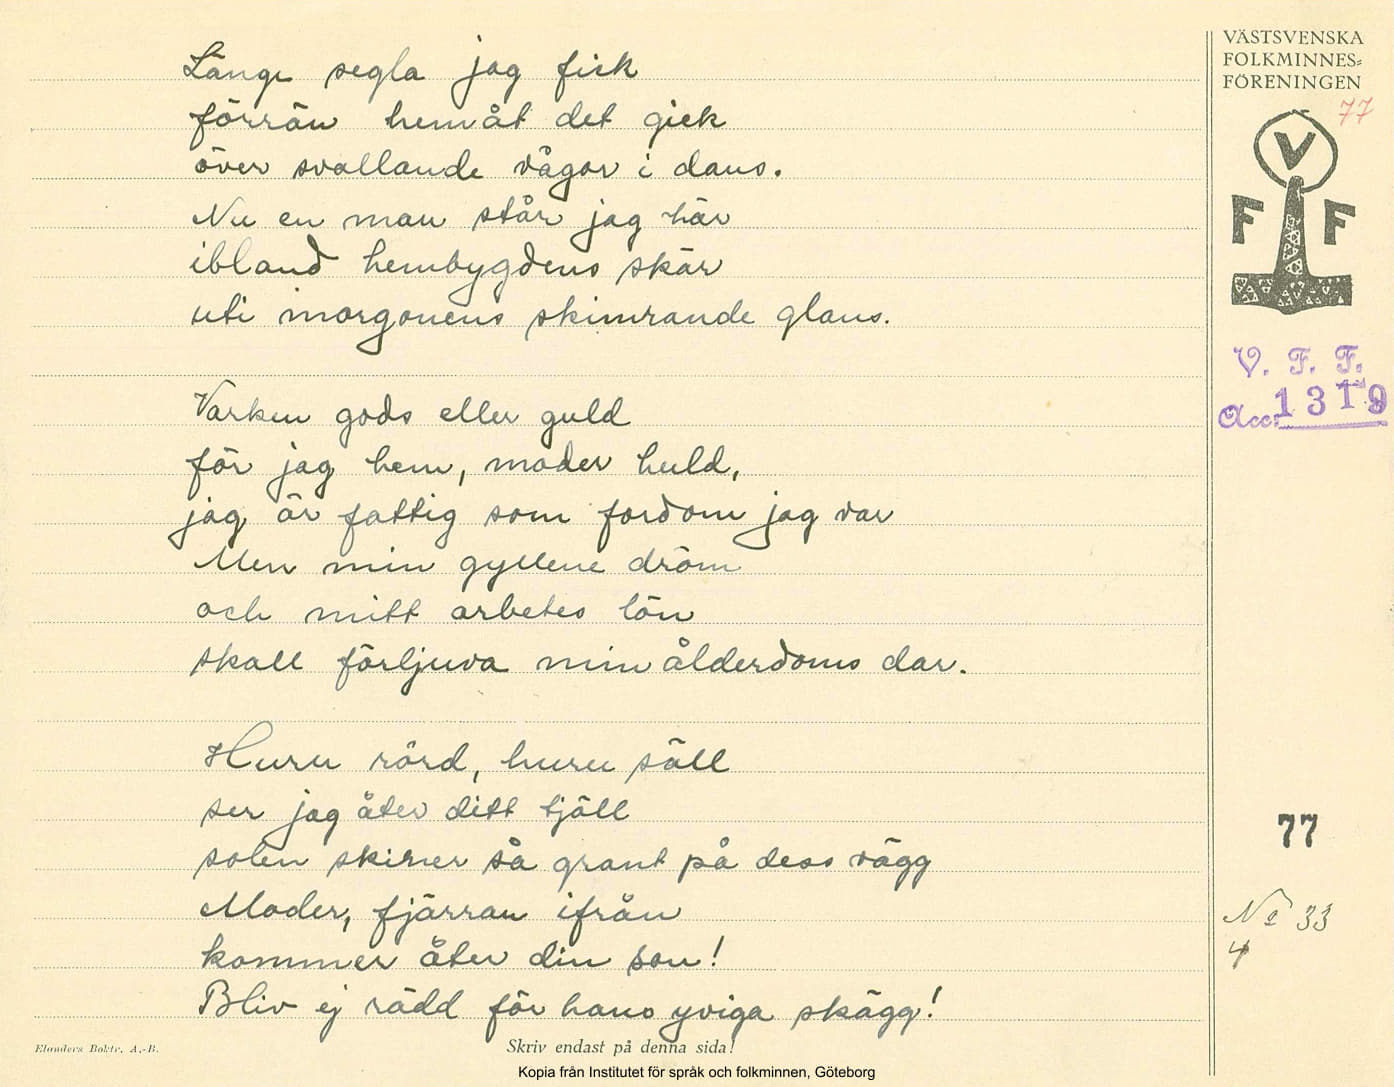 VÄSTSVENSKA
FOLKMINNES=
FÖRENINGEN
77
V
F F
V. F. F.
Acc. 1319
Länge segla jag fick
förrän hemåt det gick
över svallande vågor i dans.
Nu en man står jag här
ibland hembygdens skär
uti morgonens skimrande glans.
Varken gods eller guld
för jag hem, moder huld,
jag är fattig som fordom jag var
Men min gyllene dröm
och mitt arbetes lön
skall förljuva min ålderdoms dar.
Huru rörd, huru säll
ser jag åter ditt tjäll
solen skiner så grant på dess vägg
Moder, fjärran ifrån
kommer åter din son!
Bliv ej rädd för hans yviga skägg!
77
No 33
4
Elanders Boktr. A.-B.
Skriv endast på denna sida!
Kopia från Institutet för språk och folkminnen, Göteborg